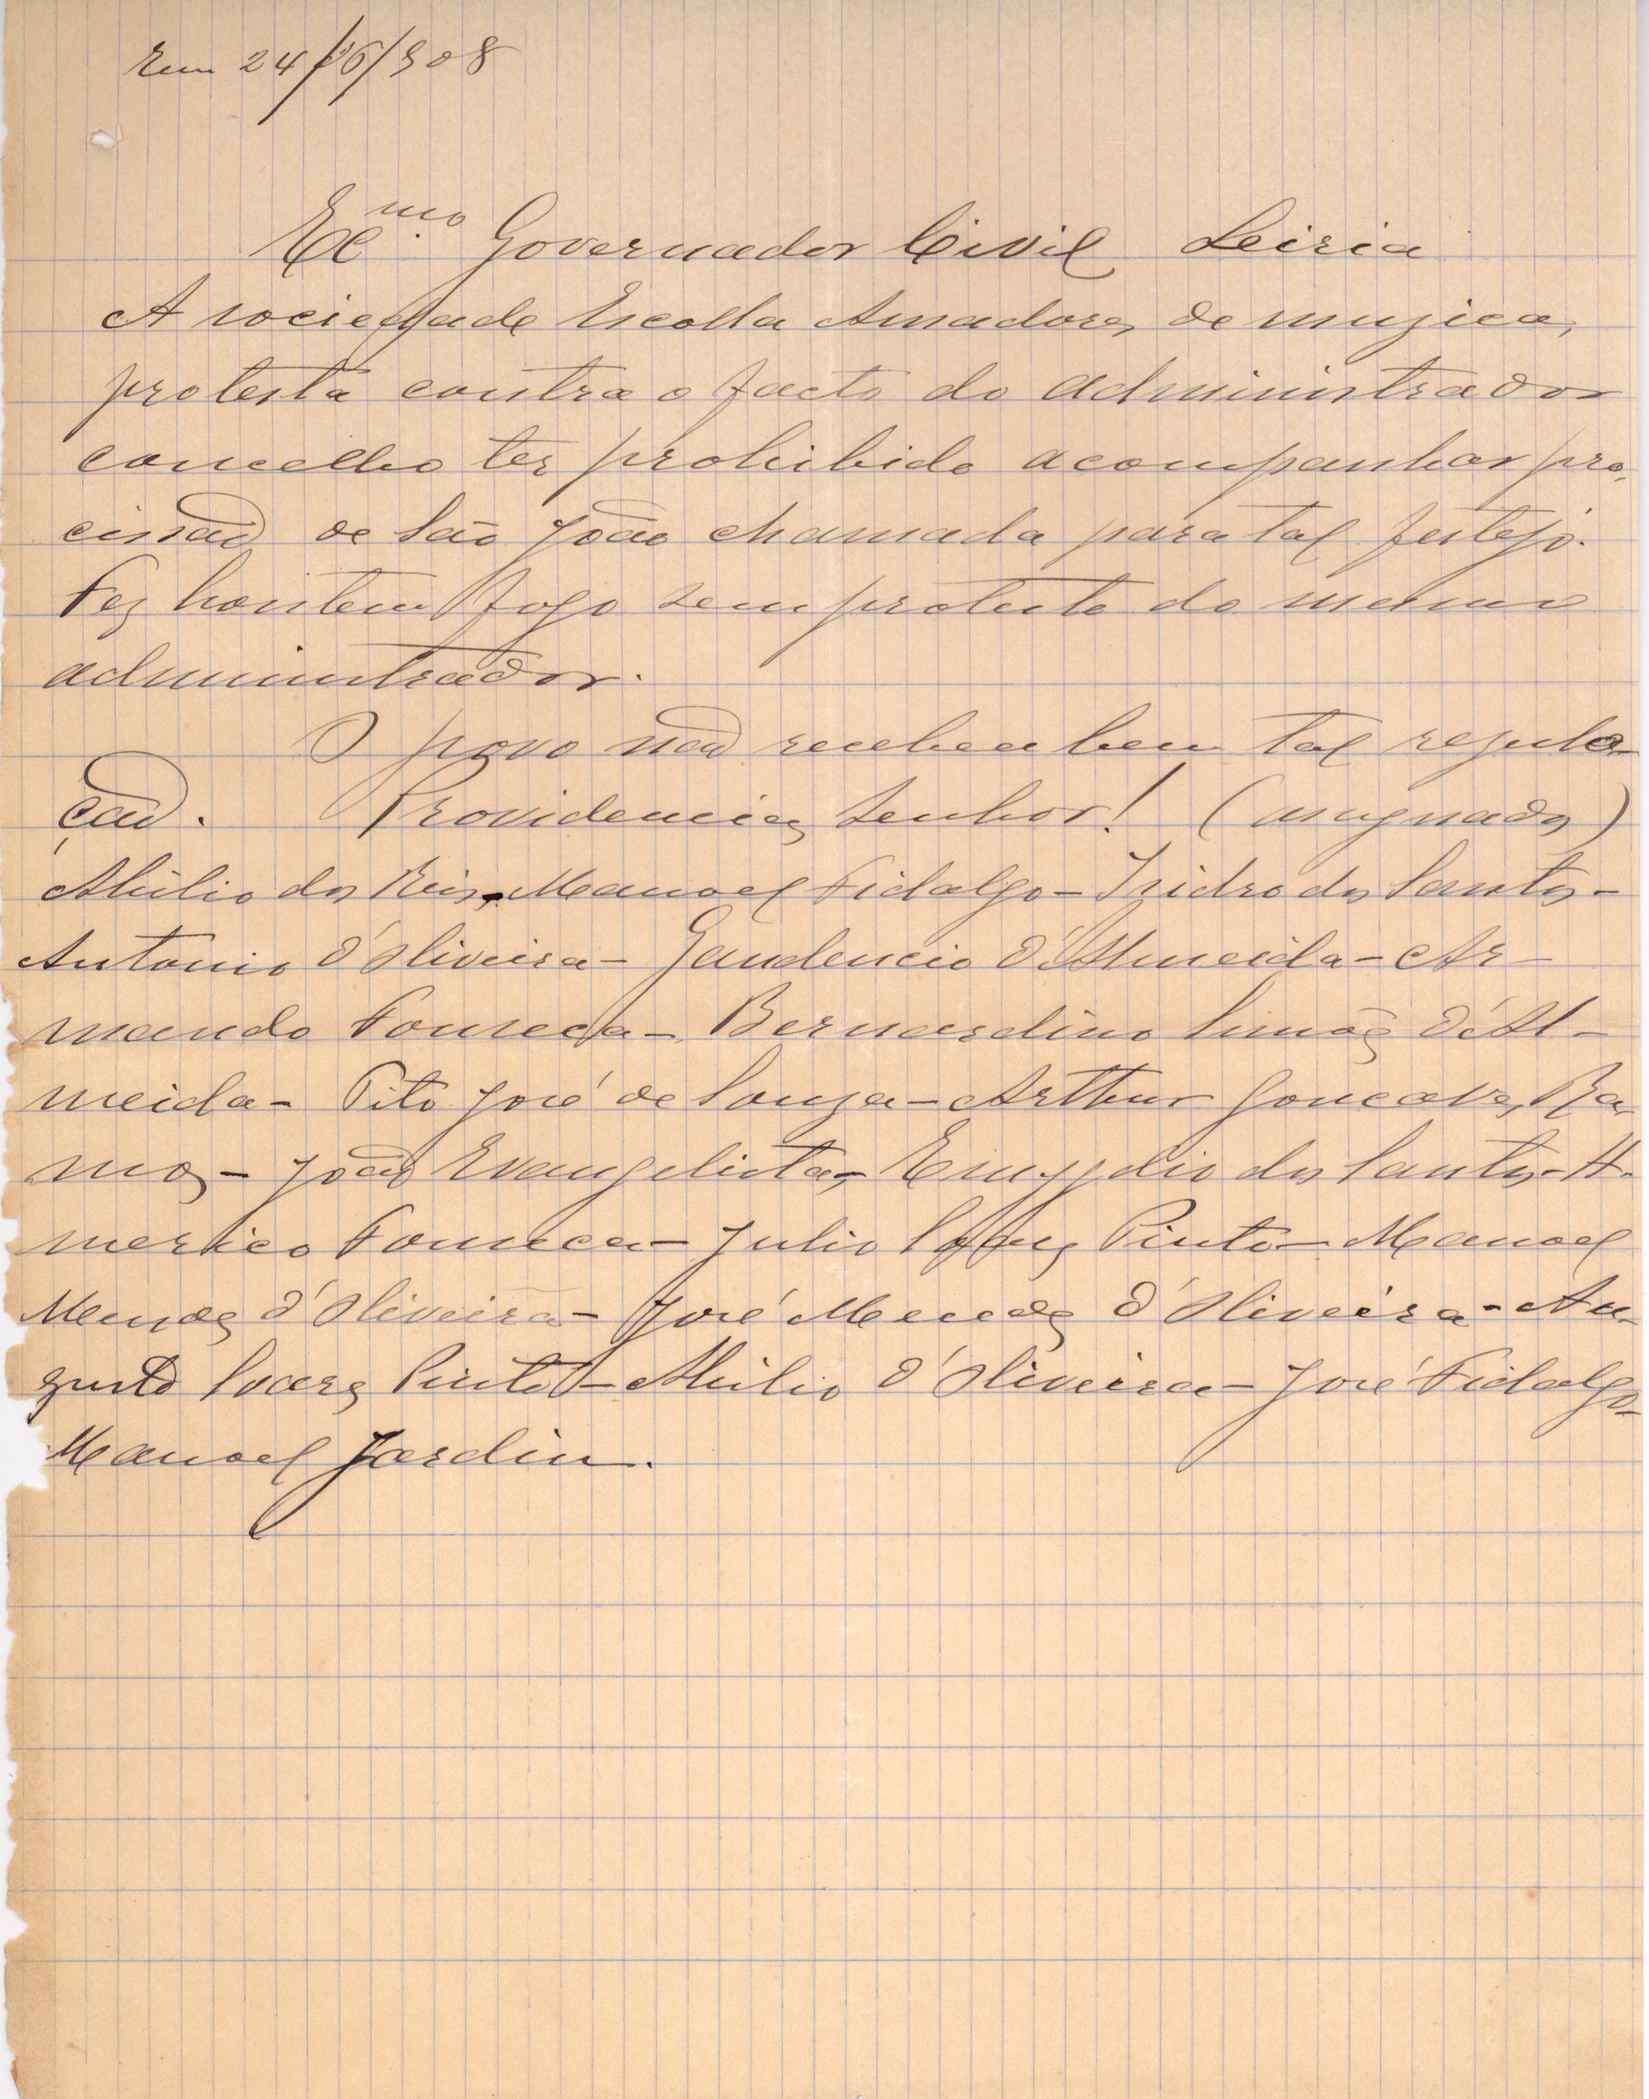 Em 24/6/908
Ex.mo Governador Civil Leiria
A sociedade Escolla Amadores de muzica,
protesta contra o facto do administrador
concelho ter prohibido acompanhar pro-
cissão de São João chamada para tal festejo.
Fez hontem fogo sem protesto do mesmo
administrador.
O povo não recebeu bem tal regula-
ção. Providencias Senhor! (assignados)
Abilio dos Reis - Manoel Fidalgo - Izidro dos Santos -
Antonio d'Oliveira - Gaudencio d'Almeida - Ar-
mando Fonseca - Bernardino Simões d'Al-
meida - Tito José de Souza - Arthur Goncalves Ra-
mos - João Evangelista - Emygdio dos Santos - A-
merico Fonseca - Julio Lopes Pinto - Manoel
Mendes d'Oliveira - José Mendes d'Oliveira - Au-
gusto Soares Pinto - Abilio d'Oliveira - José Fidalgo -
Manoel Jardin.